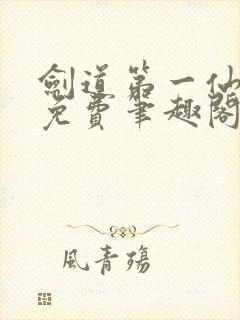 劍道第一仙
免費筆趣閣
風青殤